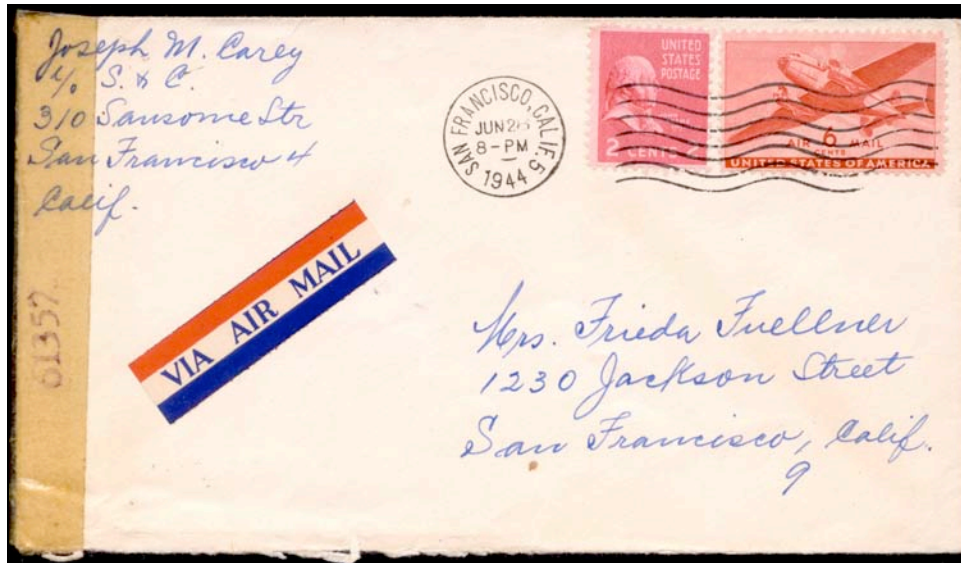 Joseph M. Carey
c/o S. & C.
310 Sansome Str
San Francisco 4
Calif.
SAN FRANCISCO, CALIF. 5
JUN 26
8-PM
1944
UNITED
STATES
POSTAGE
2 CENTS 2
AIR 6 MAIL
CENTS
UNITED STATES OF AMERICA
VIA AIR MAIL
61357
Mrs. Frieda Fuellner
1230 Jackson Street
San Francisco, Calif.
9